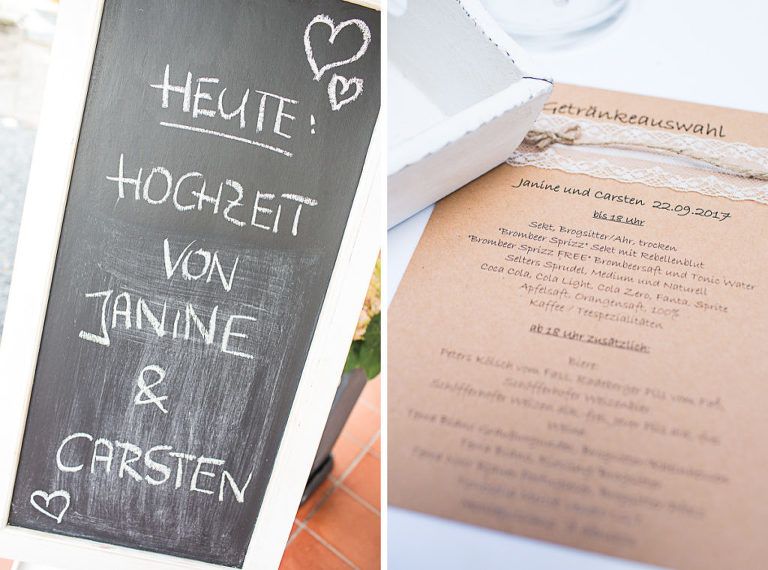 HEUTE:
HOCHZEIT
VON
JANINE
&
CARSTEN
Getränkeauswahl
Janine und Carsten 22.09.2017
bis 18 Uhr
Sekt, Brogsitter/Ahr, trocken
"Brombeer Sprizz" Sekt mit Rebellenblut
"Brombeer Sprizz FREE" Brombeersaft und Tonic Water
Selters Sprudel, Medium und Naturell
Coca Cola, Cola Light, Cola Zero, Fanta, Sprite
Apfelsaft, Orangensaft, 100%
Kaffee / Teespezialitäten
ab 18 Uhr zusätzlich:
Biere:
Peters Kölsch vom Fass, Radeberger Pils vom Faß,
Schöfferhofer Weizenbier
Schöfferhofer Weizen alk. frei, Jever Pils alk. frei
Weine